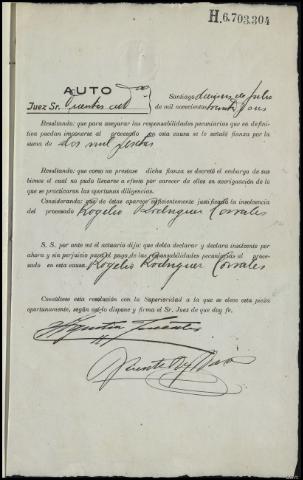 H.6.703.304
AUTO
Juez Sr. Puentes
Santiago diecinueve de Julio
de mil novecientos treinta y dos
Resultando: que para asegurar las responsabilidades pecuniarias que en defini-
tiva puedan imponerse al procesado en esta causa se le señaló fianza por la
suma de dos mil pesetas
Resultando: que como no prestase dicha fianza se decretó el embargo de sus
bienes el cual no pudo llevarse a efecto por carecer de ellos en averiguación de lo
que se practicaron las oportunas diligencias.
Considerando: que de éstas aparece suficientemente justificada la insolvencia
del procesado Rogelio Rodriguez Corrales
S. S. por ante mí el actuario dijo: que debía declarar y declara insolvente por
ahora y sin perjuicio para el pago de las responsabilidades pecuniarias al proce-
sado en esta causa Rogelio Rodriguez Corrales
Consúltese esta resolución con la Superioridad a la que se eleve esta pieza
oportunamente, según así lo dispone y firma el Sr. Juez de que doy fe.